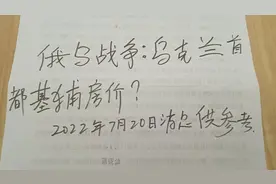 俄乌战争:乌克兰首
都基辅房价?
2022年7月20日消息供参考.